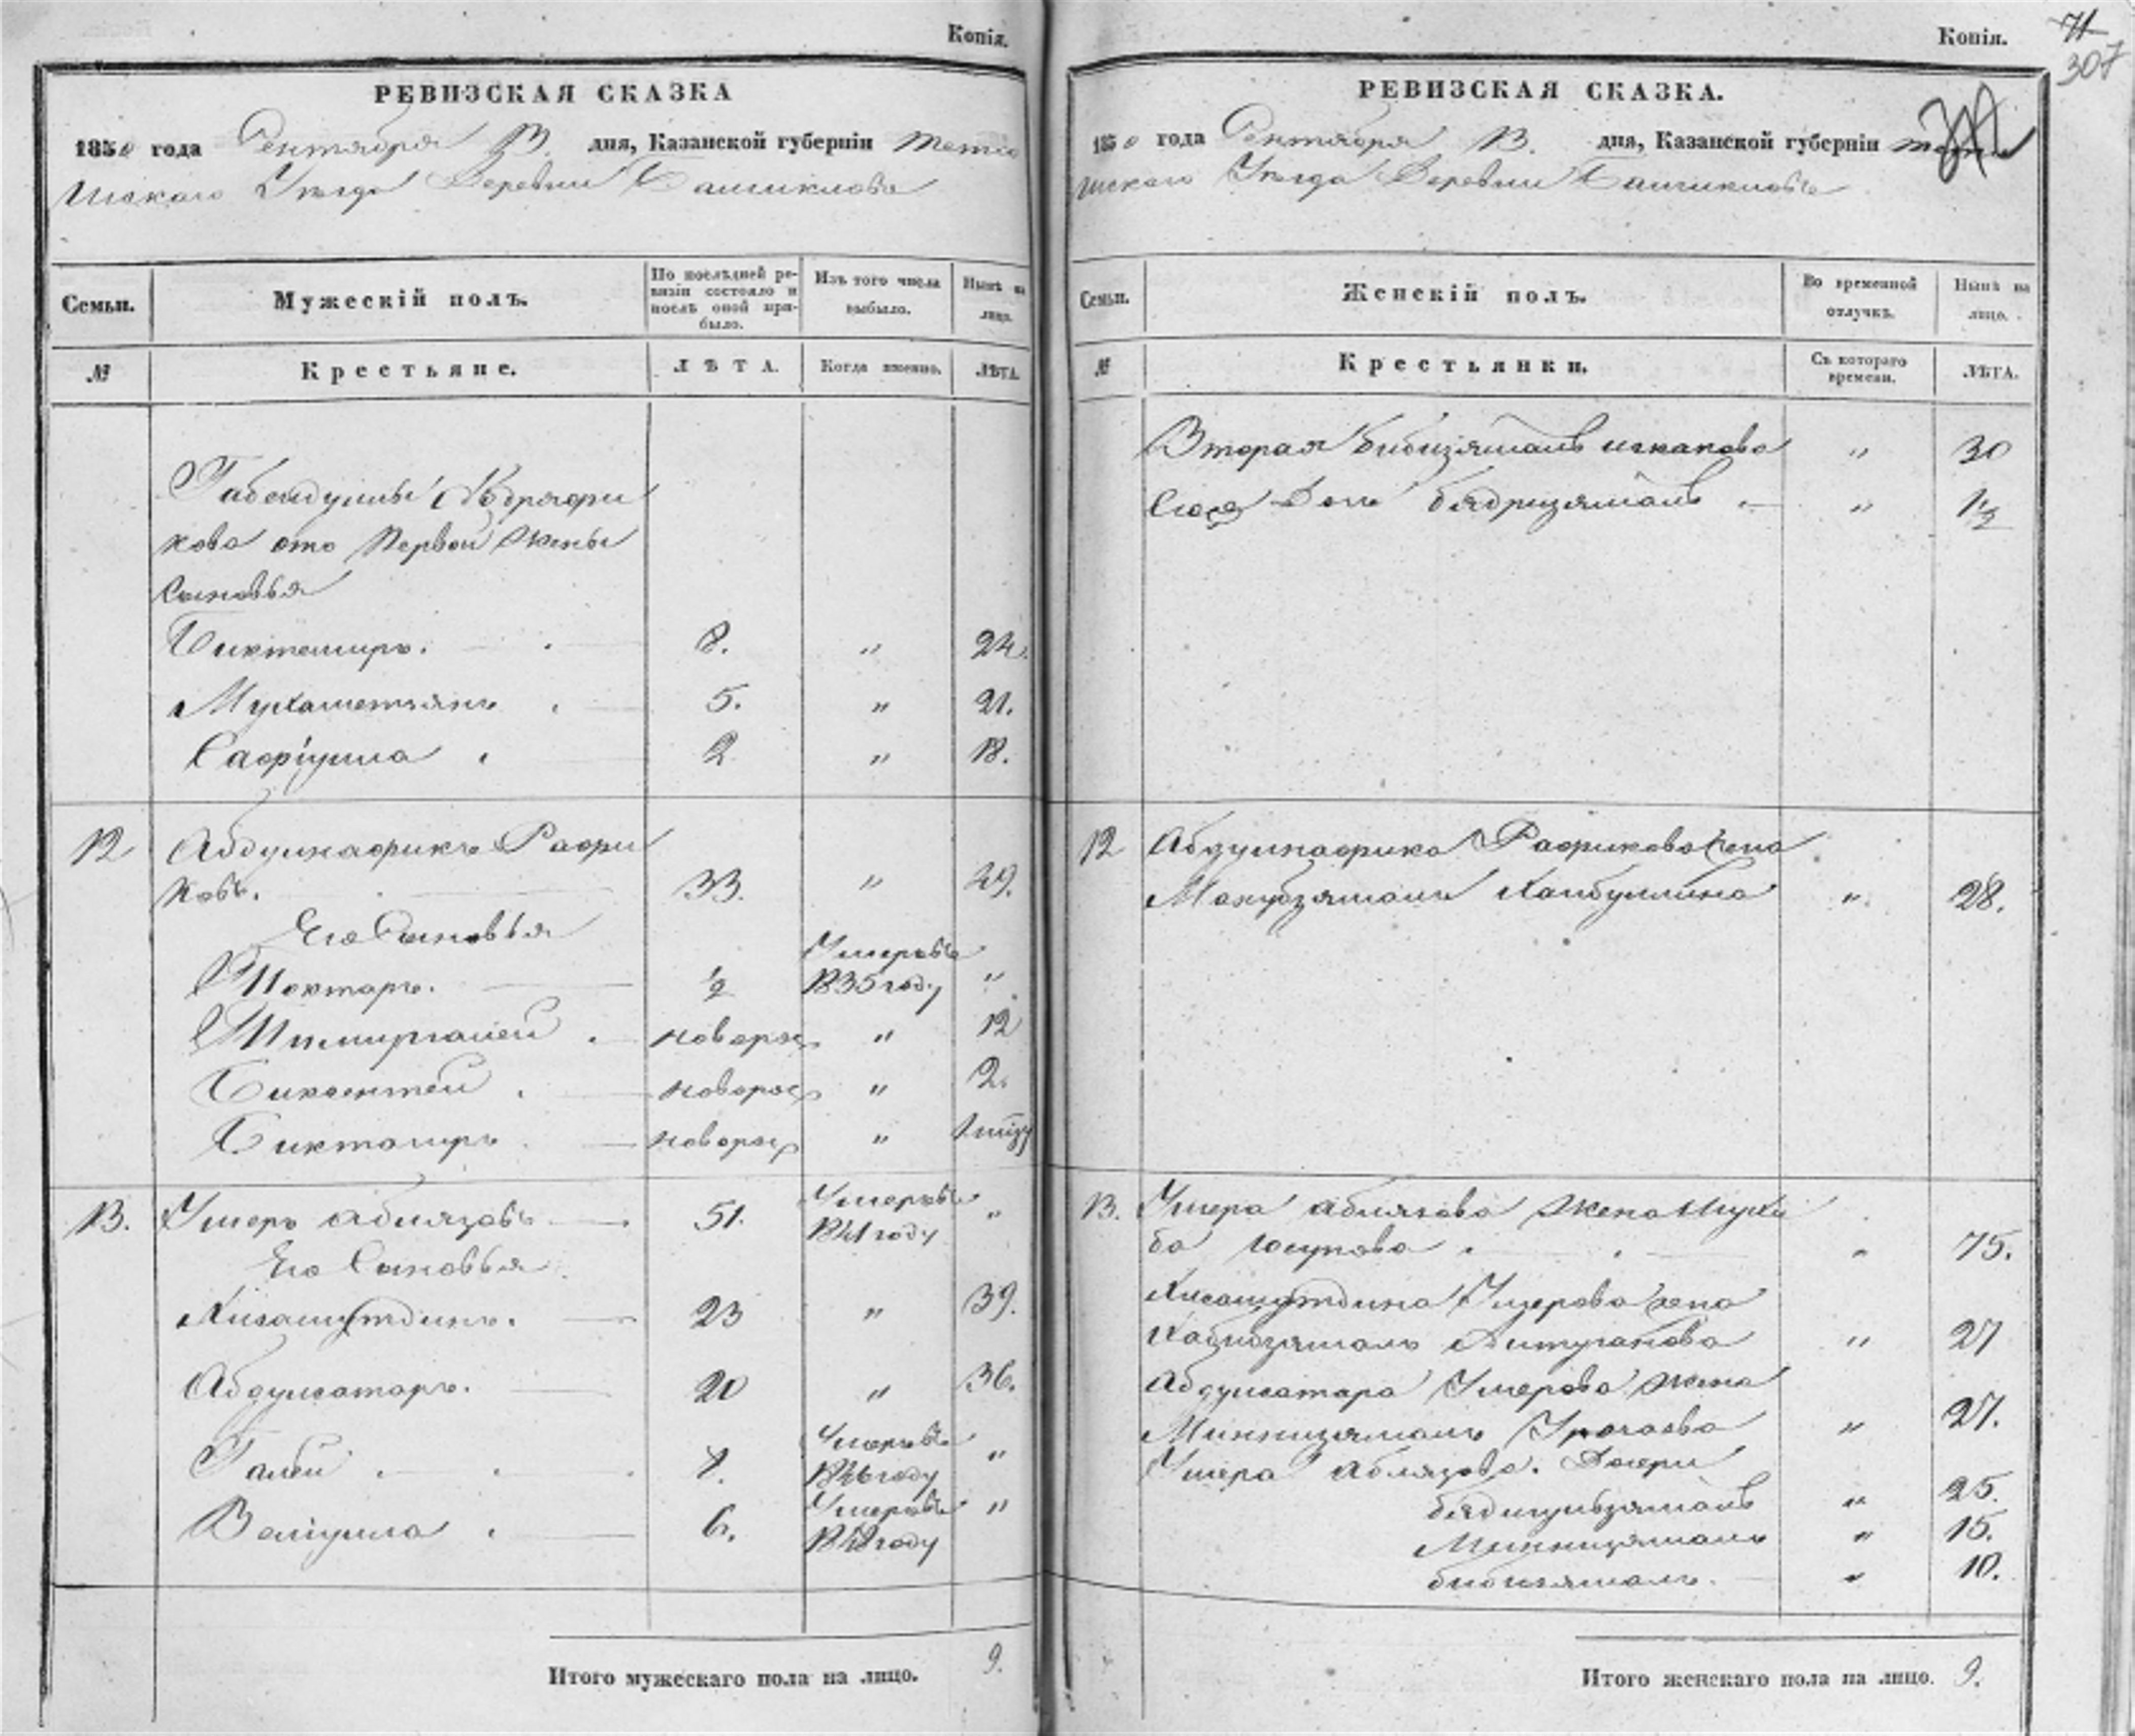 Копія.
РЕВИЗСКАЯ СКАЗКА
1850 года Сентября 13. дня, Казанской губерніи Тетю
шскаго Уезда Деревни
Семьи.
Мужескій полъ.
По послѣдней ре-
визіи состояло и
послѣ оной при-
было.
Изъ того числа
выбыло.
Нынѣ на
лицо.
№
Крестьяне.
ЛѢТА.
Когда именно.
ЛѢТА.
кова отъ Первой жены
Сыновья
Биктемиръ. 8. " 24.
Мухаметзянъ 5. " 21.
Сафіулла 2 " 18.
12 Абдулнафикъ Рафи
ковъ. 33. " 49.
Его Сыновья
Умеръ въ
Мохтаръ. 1/2 1835 году "
новорож " 12
новорож " 2.
Биктимиръ новорож "
13. Умеръ Аблязовъ 51. Умеръ въ "
1841 году
Его Сыновья
Хисамутдинъ. 23 " 39.
Абдулсатаръ. 20 " 36.
Галей Умеръ въ "
1846 году
Валіулла 6. Умеръ въ "
1848 году
Итого мужескаго пола на лицо. 9.
Копія. 71
307
РЕВИЗСКАЯ СКАЗКА.
1850 года Сентября 13. дня, Казанской губерніи
шскаго Уезда Деревни
Семьи.
Женскій полъ.
Во временной
отлучкѣ.
Нынѣ на
лицо.
№
Крестьянки.
Съ котораго
времени.
ЛѢТА.
Вторая бибизямалъ искакова " 30
Ея Дочь бядризямалъ " 1 1/2
12 Абдулнафика Рафикова жена
Хайбуллина " 28.
13. Умера Аблязова жена Мухи
ба Юсупова " 75.
Хисамутдина Умерова жена
Хабибзямалъ Аитуганова " 27
Абдулсатара Умерова жена
Миннизямалъ " 27.
Умера Аблязова. Дочери
" 25.
Миннизямалъ " 15.
бибизямалъ. " 10.
Итого женскаго пола на лицо. 9.